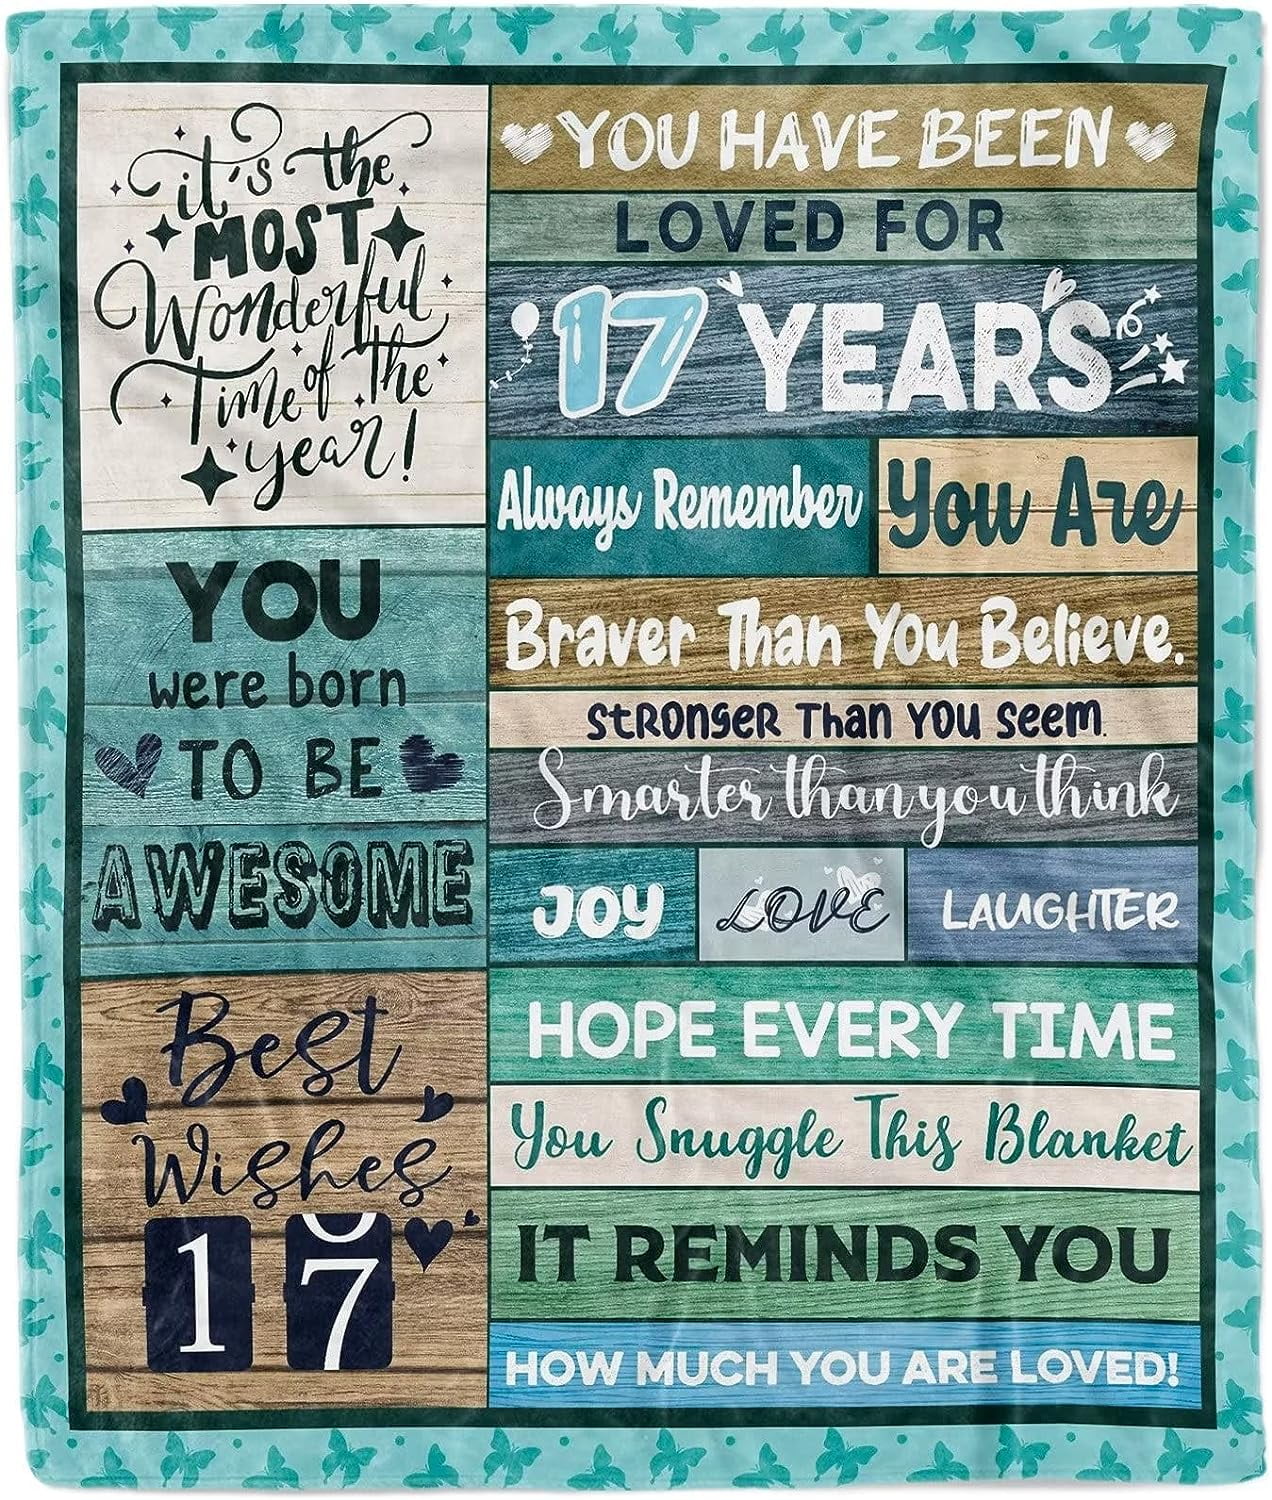 it's the
MOST
Wonderful
Time of the
year!
YOU
were born
TO BE
AWESOME
Best
Wishes
17
YOU HAVE BEEN
LOVED FOR
17 YEARS
Always Remember
You Are
Braver Than You Believe.
Stronger Than You Seem.
Smarter than you think
JOY
LOVE
LAUGHTER
HOPE EVERY TIME
You Snuggle This Blanket
IT REMINDS YOU
HOW MUCH YOU ARE LOVED!